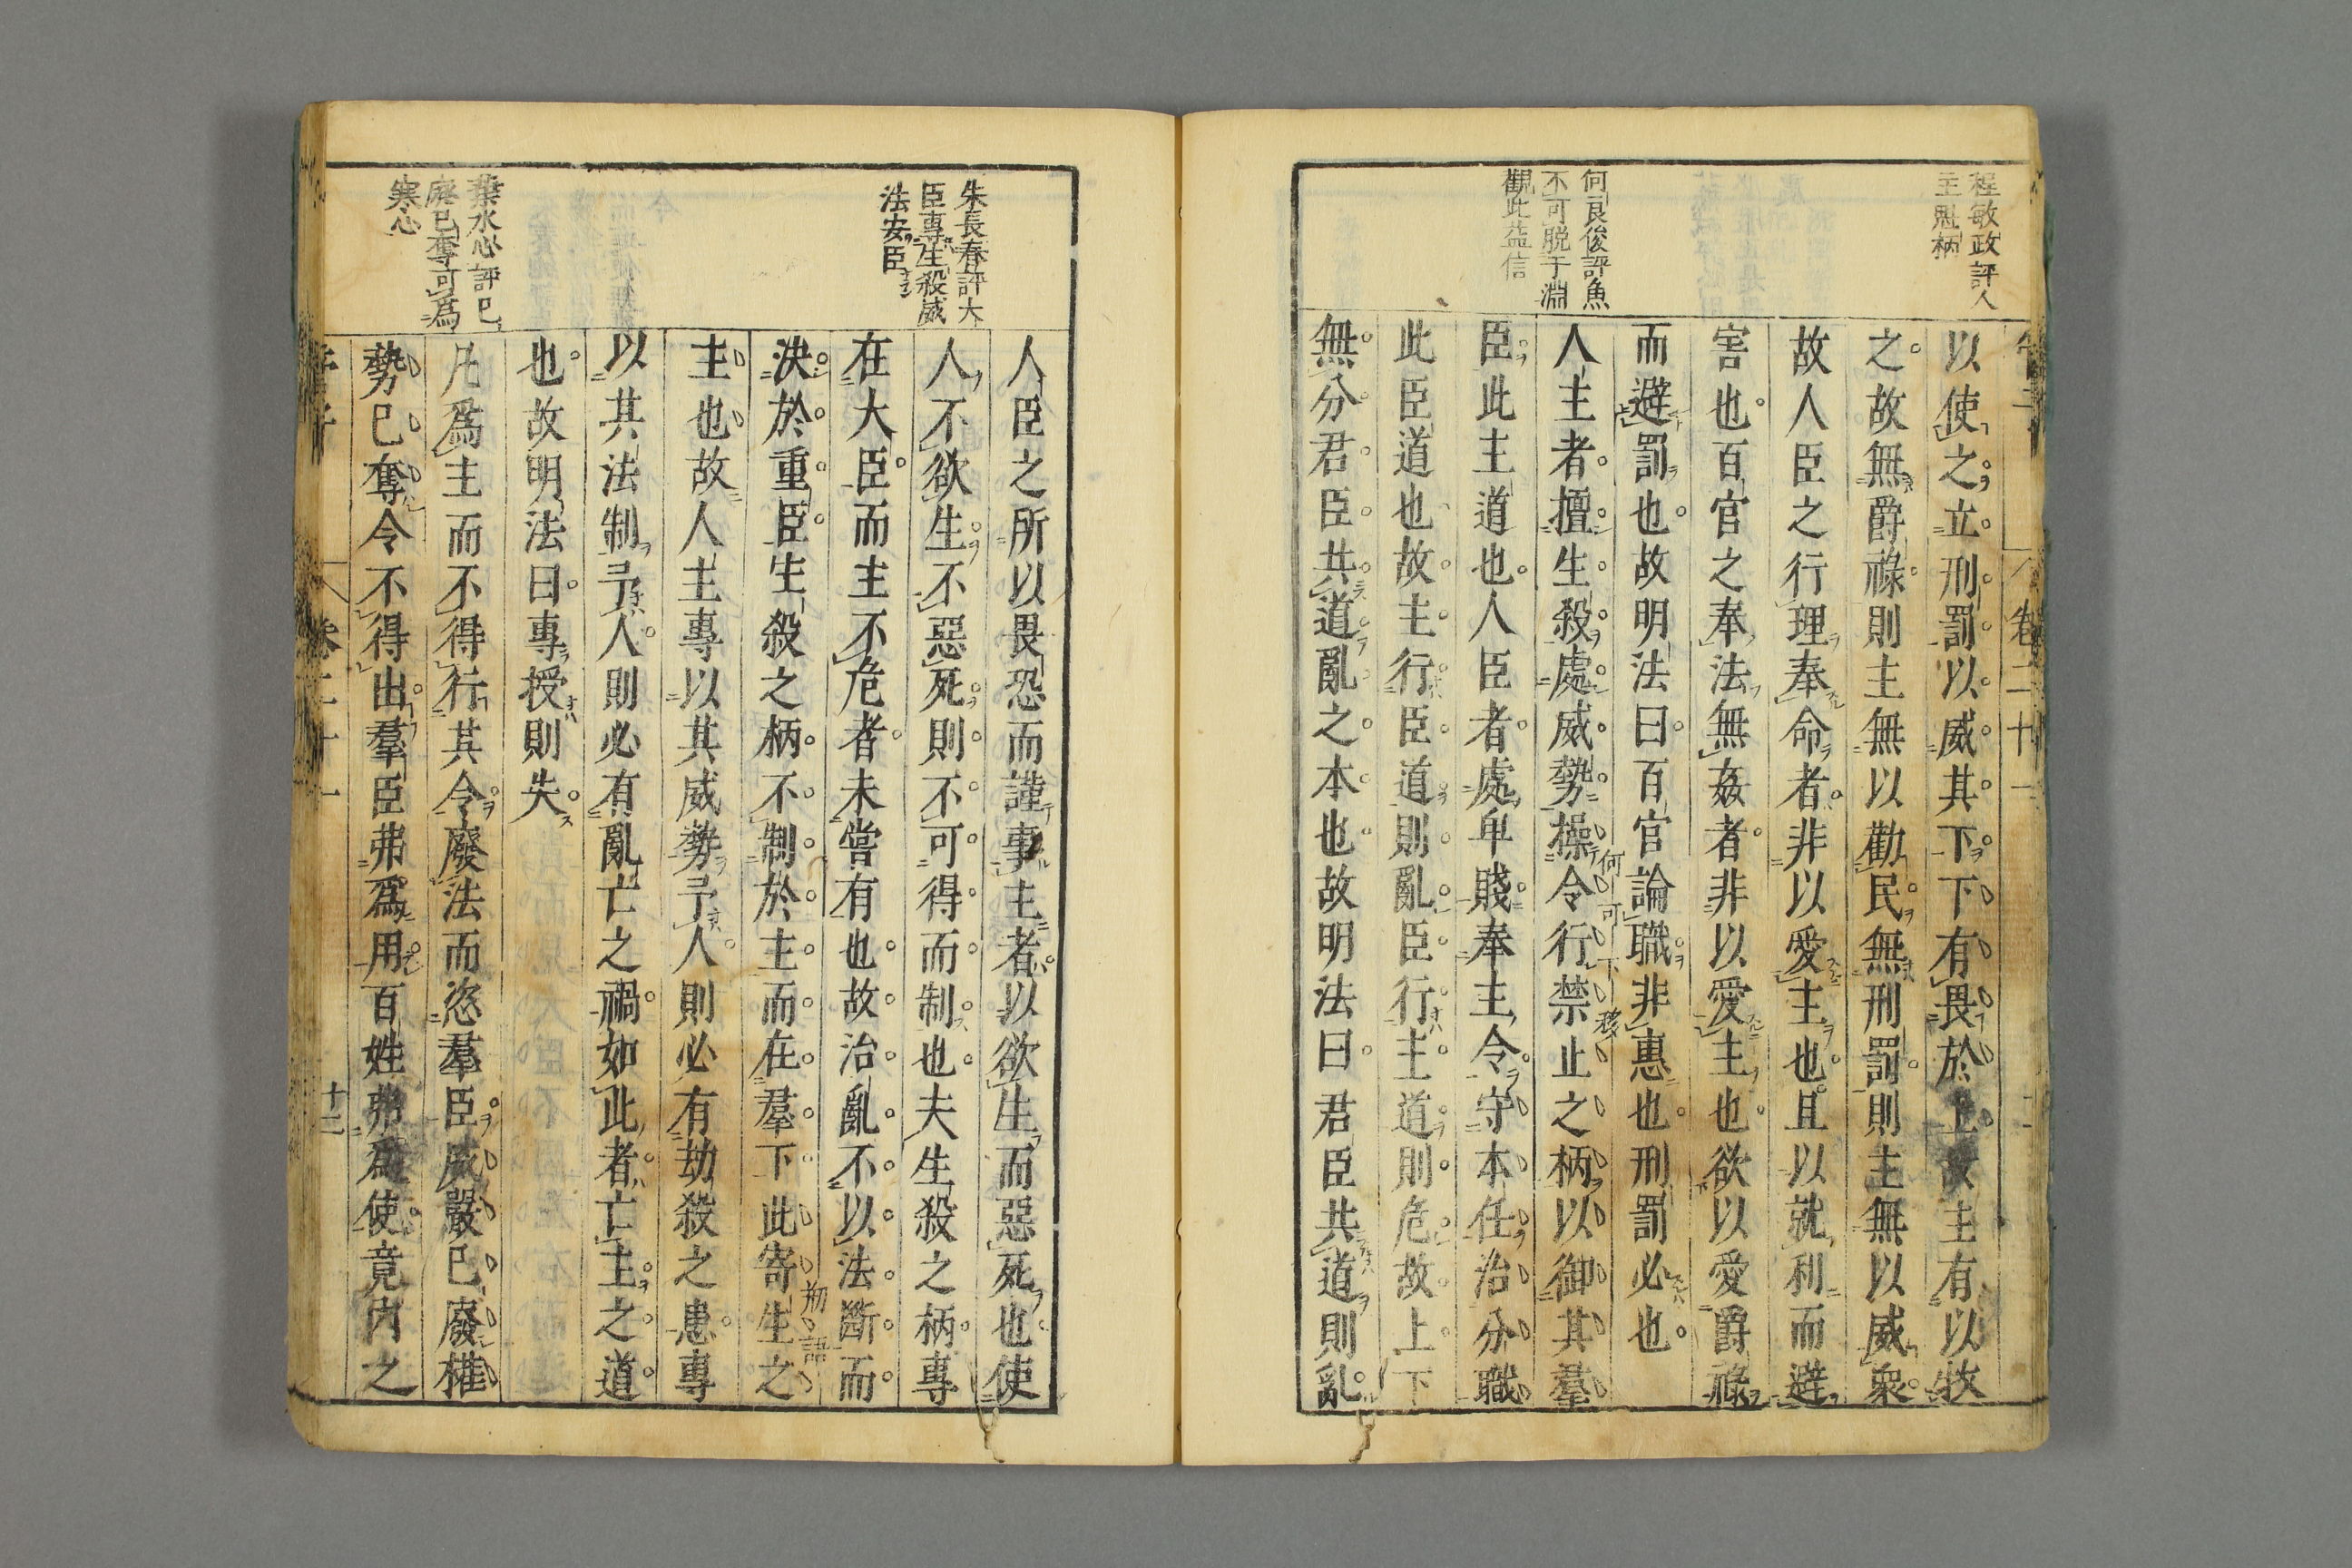 程敏政評人
主魁柄
何良俊評魚
不可脱于淵
觀此益信
卷二十一
以使之立刑罰以威其下下有畏於上故主有以牧
之故無爵祿則主無以勸民無刑罰則主無以威衆
故人臣之行理奉命者非以愛主也且以就利而避
害也百官之奉法無姦者非以愛主也欲以愛爵祿
而避罰也故明法曰百官論職非惠也刑罰必也
何可下移
人主者擅生殺處威勢操令行禁止之柄以御其羣
臣此主道也人臣者處卑賤奉主令守本任治分職
此臣道也故主行臣道則亂臣行主道則危故上下
無分君臣共道亂之本也故明法曰君臣共道則亂
朱長春評大
臣專生殺威
法安臣
葉水心評已
廢已奪可爲
寒心
人臣之所以畏恐而謹事主者以欲生而惡死也使
人不欲生不惡死則不可得而制也夫生殺之柄專
在大臣而主不危者未嘗有也故治亂不以法斷而
決於重臣生殺之柄不制於主而在羣下此寄生之
主也故人主專以其威勢予人則必有劫殺之患專
以其法制予人則必有亂亡之禍如此者亡主之道
也故明法曰專授則失
凡爲主而不得行其令廢法而恣羣臣威嚴已廢權
勢已奪令不得出羣臣弗爲用百姓弗爲使竟內之
卷二十一
十二